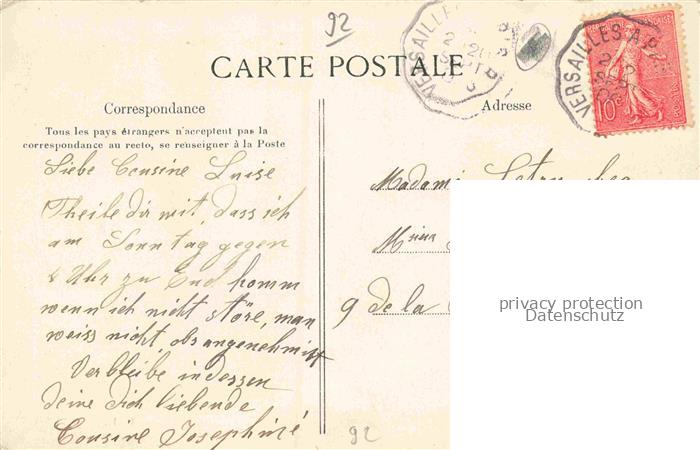 92
CARTE POSTALE
Correspondance
Tous les pays étrangers n'acceptent pas la
correspondance au recto, se renseigner à la Poste
Liebe Cousine Luise
Theile dir mit, dass ich
am Sonntag gegen
Uhr zu Euch komm
wenn ich nicht störe, man
weiss nicht, obs angenehm ist
Verbleibe indessen
deine dich liebende
Cousine Josephine
92
Adresse
VERSAILLES
VERSAILLES A P
10c
Madame
Msieur
9 de la
privacy protection
Datenschutz